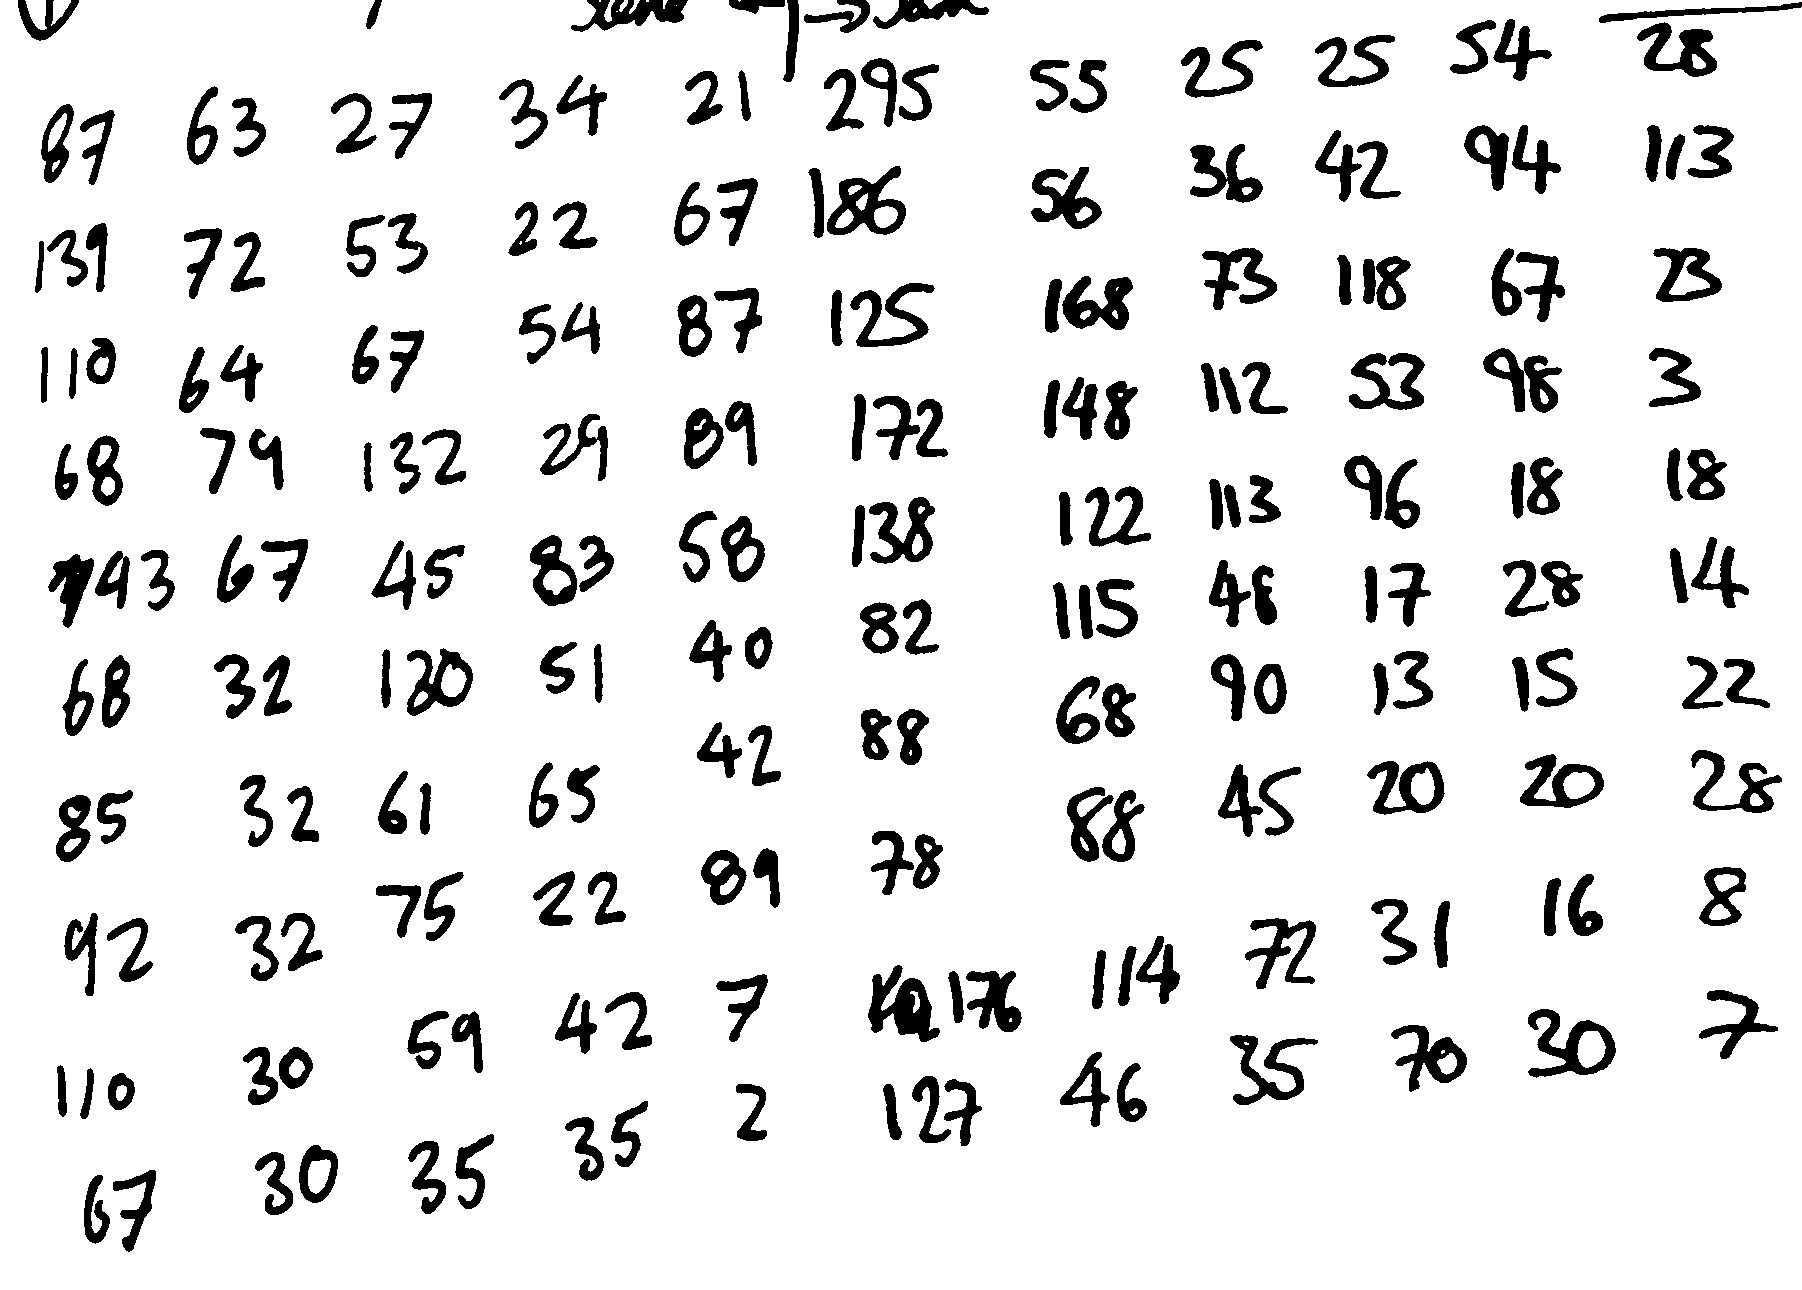 87 63 27 34 21 295 55 25 25 54 28
139 72 53 22 67 186 56 36 42 94 113
110 64 67 54 87 125 168 73 118 67 23
68 79 132 29 89 172 148 112 53 98 3
143 67 45 83 58 138 122 113 96 18 18
68 32 130 51 40 82 115 48 17 28 14
85 32 61 65 42 88 68 90 13 15 22
92 32 75 22 89 78 88 45 20 20 28
110 30 59 42 7 176 114 72 31 16 8
67 30 35 35 2 127 46 35 70 30 7